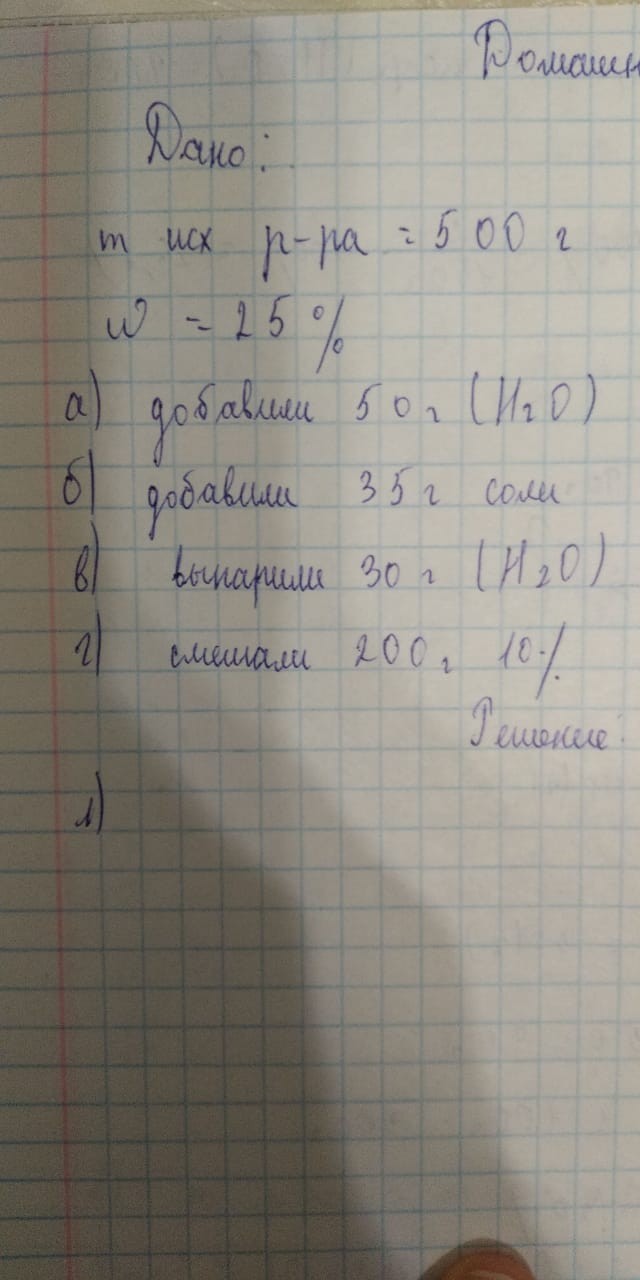 Домашн
Дано:
m исх р-ра = 500 г
w = 25 %
а) добавили 50 г (H2O)
б) добавили 35 г соли
в) выпарили 30 г (H2O)
г) смешали 200 г 10%
Решение:
1)